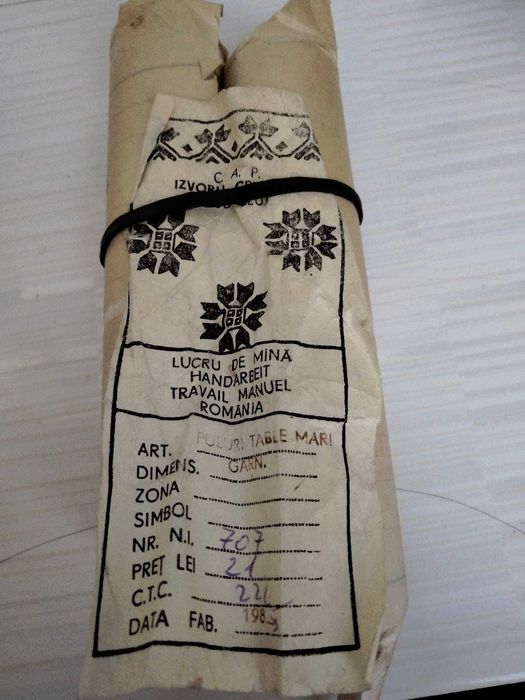 C. A. P.
IZVORU
LUCRU DE MINĂ
HANDARBEIT
TRAVAIL MANUEL
ROMANIA
ART. PULURI TABLE MARI
DIMENS. GARN.
ZONA
SIMBOL
NR. N.I. 707
PREȚ LEI 21
C.T.C. 22
DATA FAB. 198